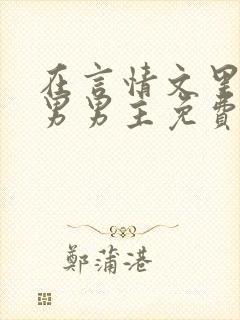 在言情文里
男男主免費
鄭蒲港